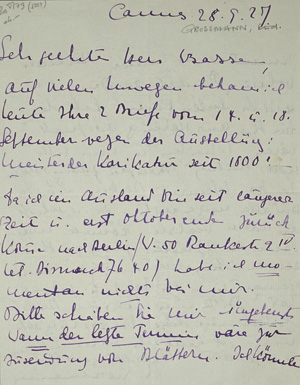 Cannes 28.9.27
GROSSMANN, Rud.
Sehr geehrter Herr Basse,
auf vielen Umwegen bekam ich
heute Ihre 2 Briefe vom 14. u. 18.
September wegen der Ausstellung:
Meister der Karikatur seit 1800!
Da ich im Ausland bin seit längerer
Zeit u. erst Oktoberende zurück
komme nach Berlin (W. 50 Rankestr 2 IV
tel. Bismarck 76 40) habe ich mo-
mentan nichts bei mir.
Bitte schreiben Sie mir umgehend
wann der letzte Termin wäre zur
Zusendung von Blättern. Ich könnte